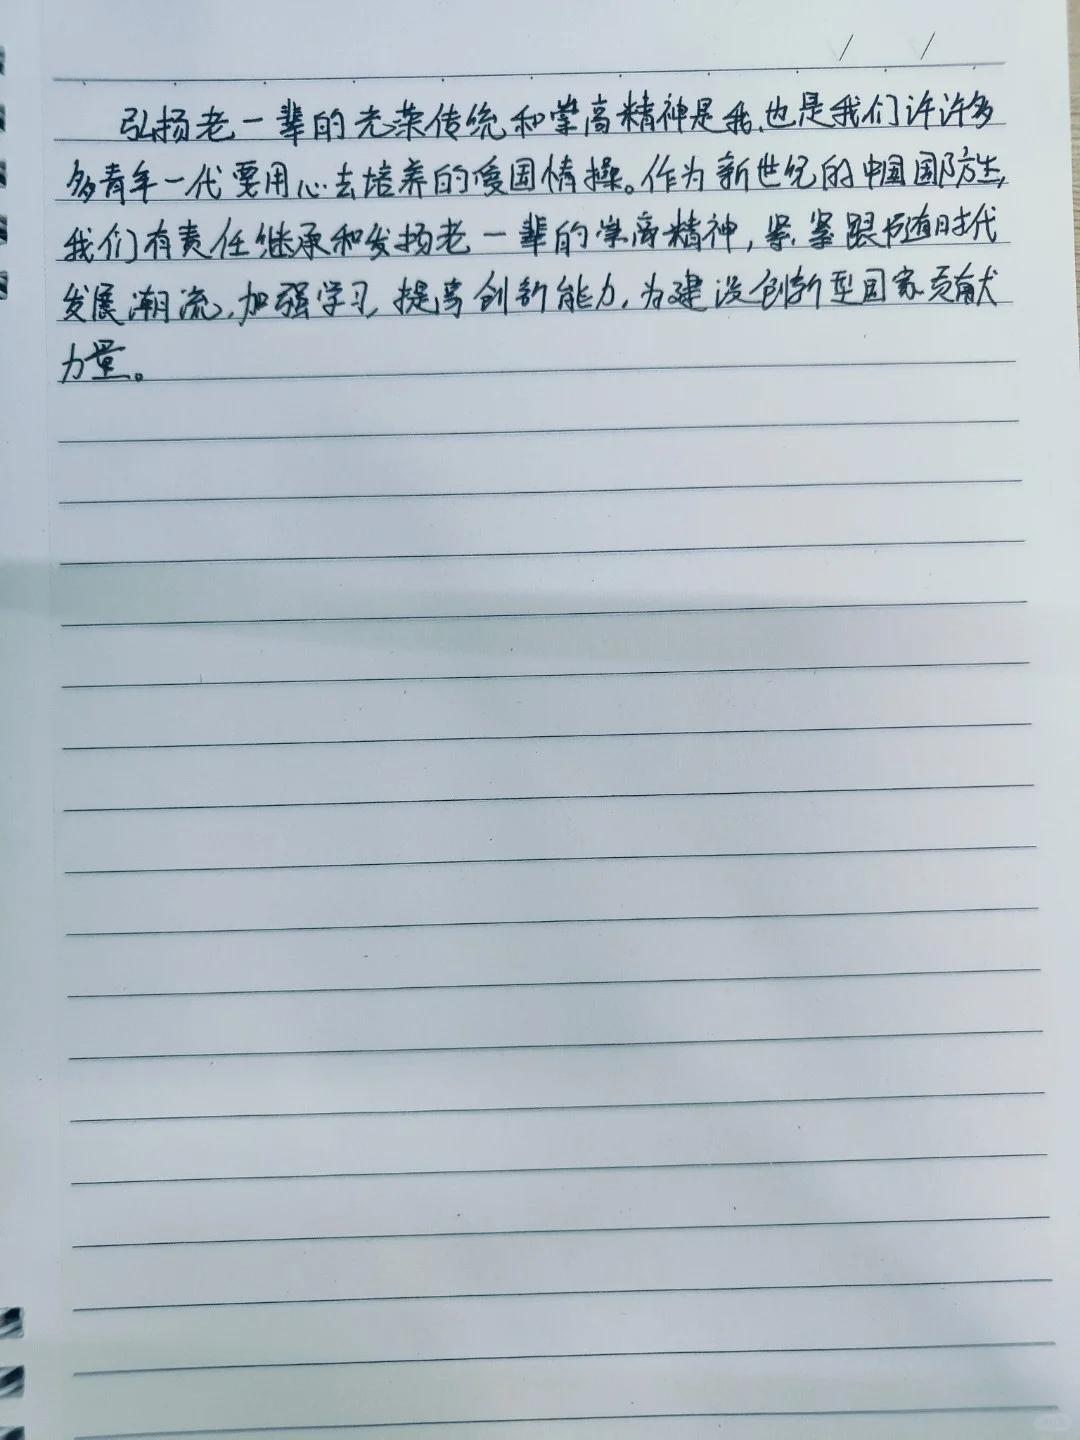 弘扬老一辈的光荣传统和崇高精神是我,也是我们许许多
多青年一代要用心去培养的爱国情操。作为新世纪的中国国防生,
我们有责任继承和发扬老一辈的崇高精神,紧紧跟随时代
发展潮流,加强学习,提高创新能力,为建设创新型国家贡献
力量。